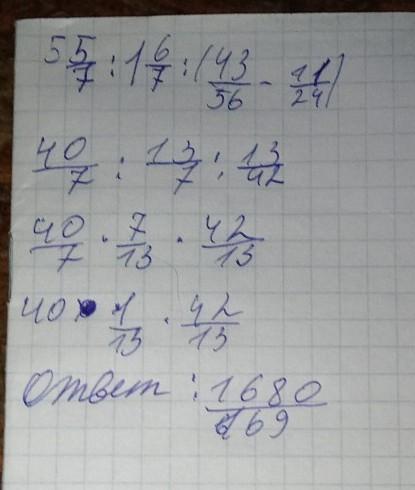 5 5/7 : 1 6/7 : (43/56 - 11/24)
40/7 : 13/7 : 13/42
40/7 · 7/13 · 42/13
40 · 1/13 · 42/13
Ответ : 1680/169